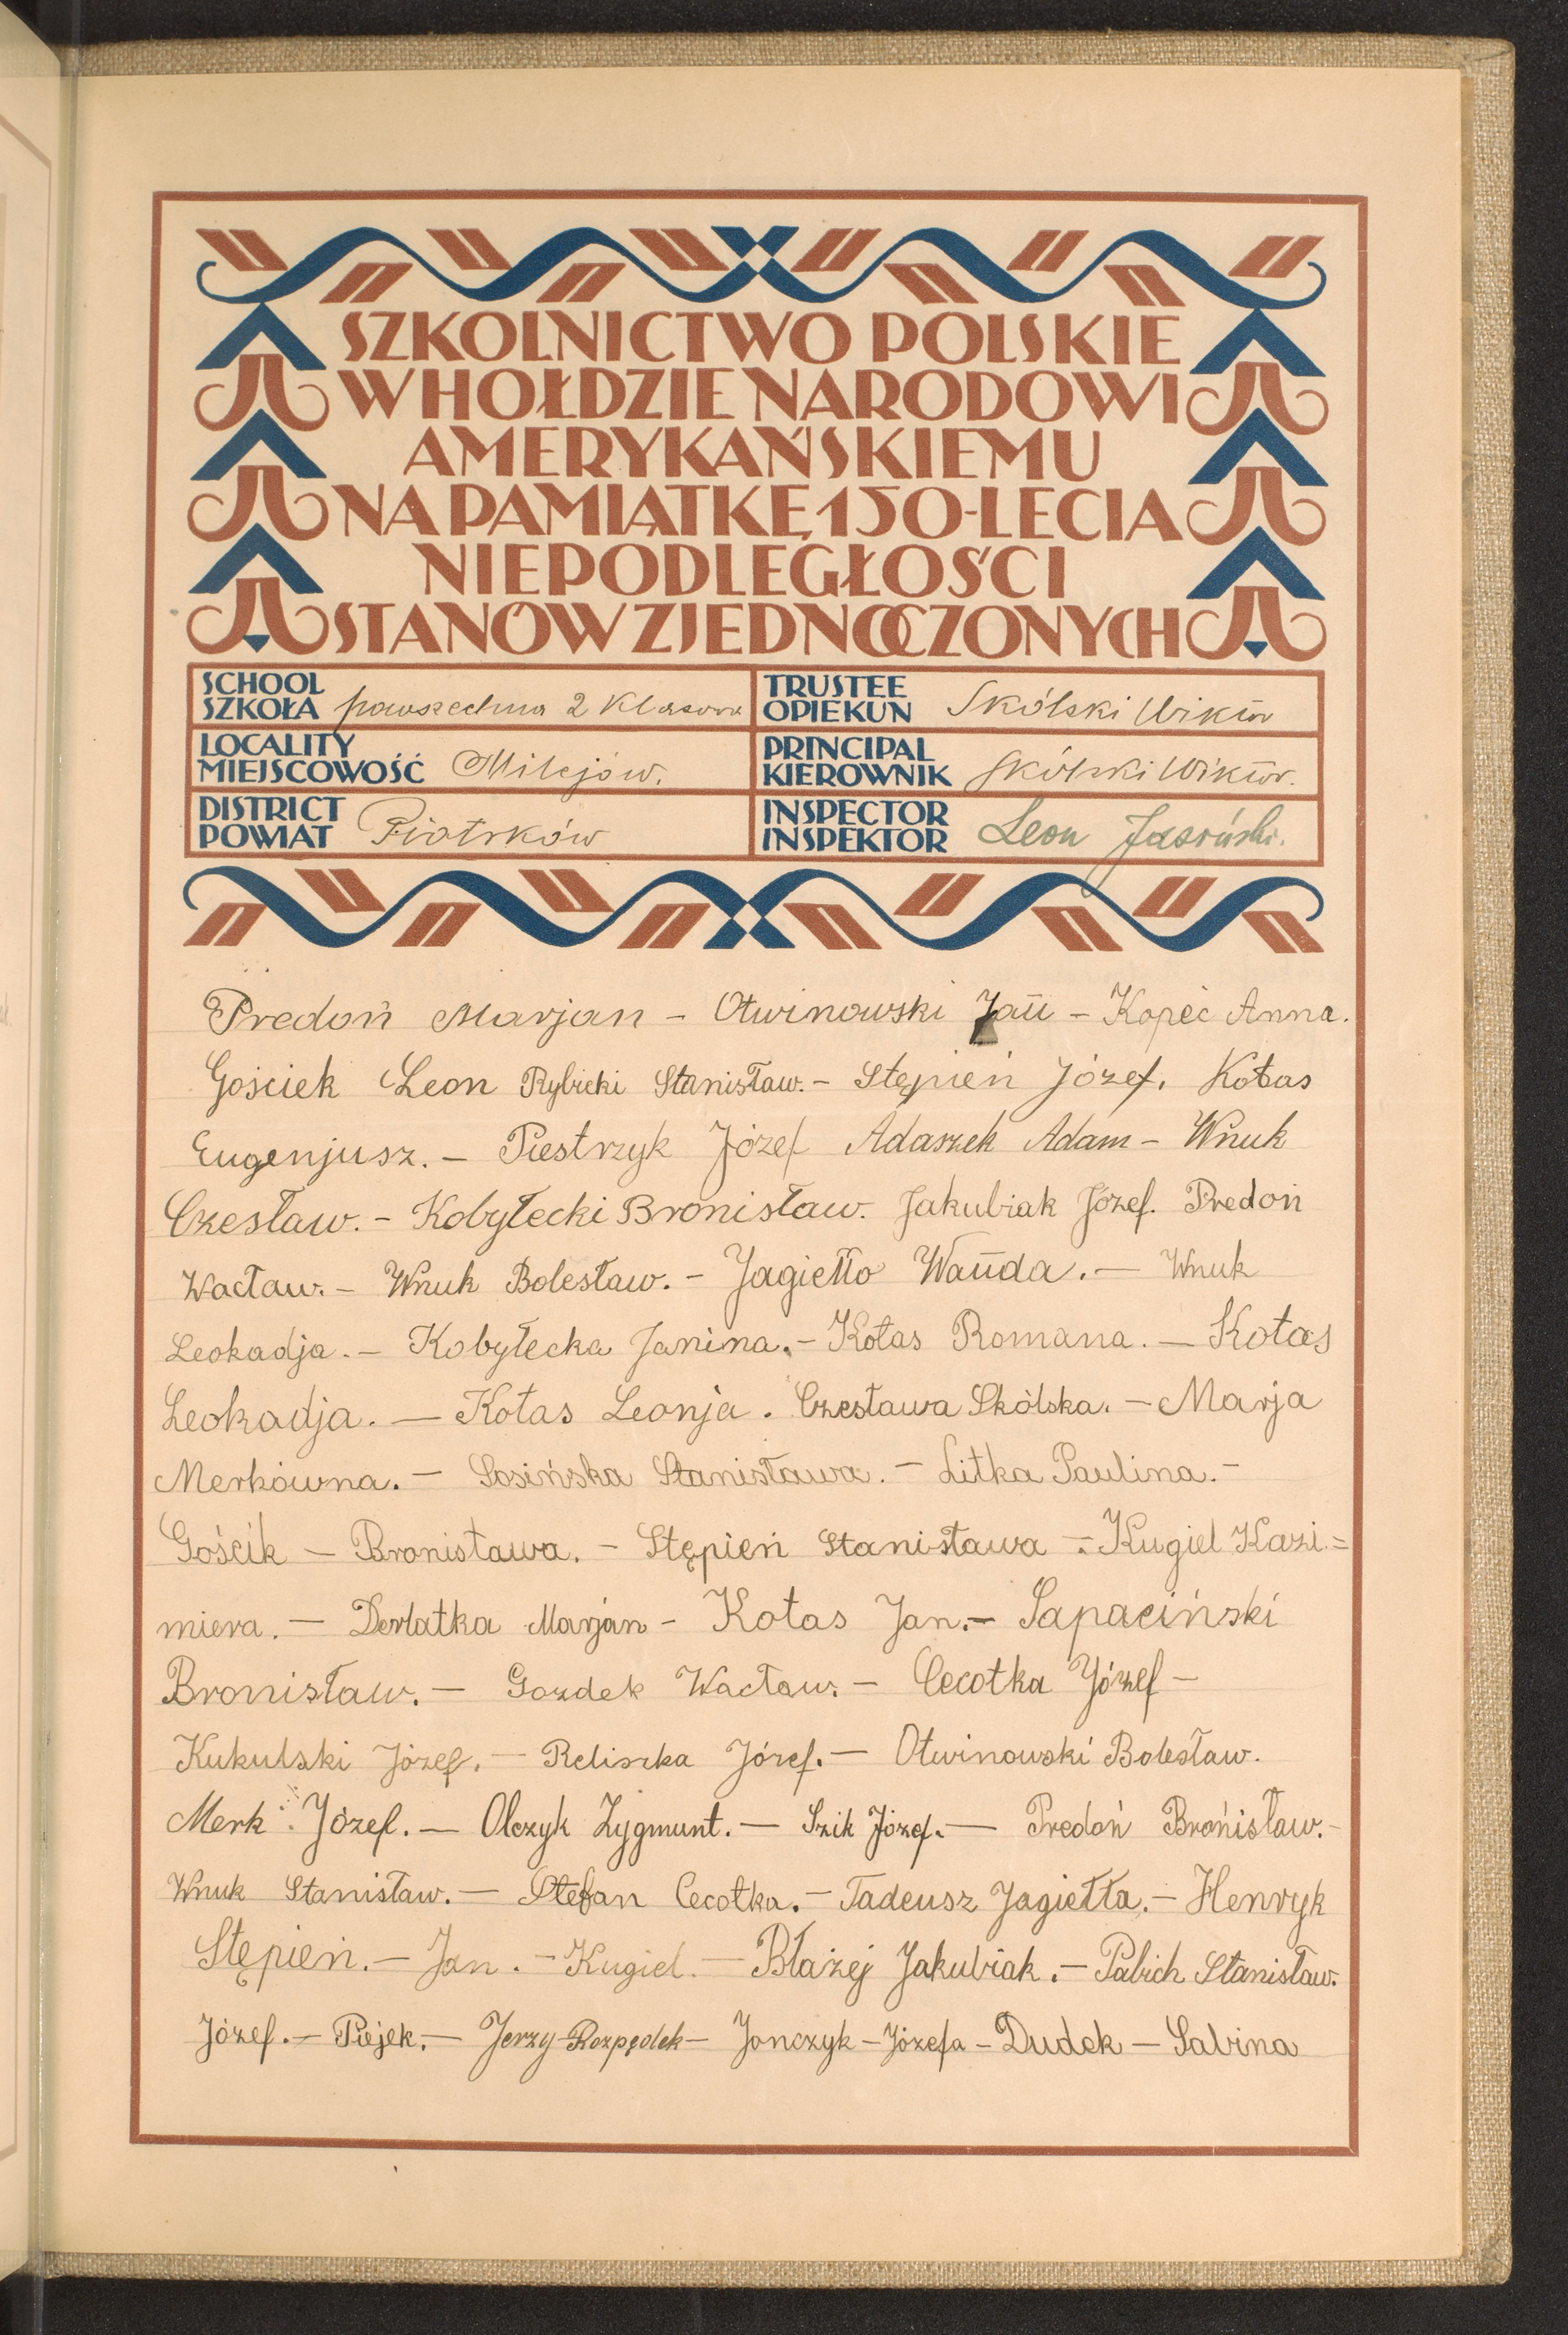 SZKOLNICTWO POLSKIE
W HOŁDZIE NARODOWI
AMERYKAŃSKIEMU
NA PAMIĄTKĘ 150-LECIA
NIEPODLEGŁOŚCI
STANÓW ZJEDNOCZONYCH
SCHOOL
SZKOŁA powszechna 2 klasowa
TRUSTEE
OPIEKUN Skólski Wiktor
LOCALITY
MIEJSCOWOŚĆ Milejów.
PRINCIPAL
KIEROWNIK Skólski Wiktor.
DISTRICT
POWIAT Piotrków
INSPECTOR
INSPEKTOR Leon Jasiński.
Predoń Marjan - Otwinowski Jan - Kopeć Anna.
Gościek Leon Rybicki Stanisław. - Stępień Józef. Kotas
Eugenjusz. - Piestrzyk Józef Adaszek Adam - Wnuk
Czesław. - Kobyłecki Bronisław. Jakubiak Józef. Predoń
Wacław. - Wnuk Bolesław. - Jagiełło Wanda. - Wnuk
Leokadja. - Kobyłecka Janina. - Kotas Romana. - Kotas
Leokadja. - Kotas Leonja. Czesława Skólska. - Marja
Merkówna. - Sosińska Stanisława. - Litka Paulina. -
Gościk - Bronisława. - Stępień Stanisława - Kugiel Kazi=
miera. - Derlatka Marjan - Kotas Jan. - Sapaciński
Bronisław. - Gozdek Wacław. - Cecotka Józef -
Kukulski Józef. - Reliszka Józef. - Otwinowski Bolesław.
Merk Józef. - Olczyk Zygmunt. - Szik Józef. - Predoń Brońisław. -
Wnuk Stanisław. - Stefan Cecotka. - Tadeusz Jagiełła. - Henryk
Stępień. - Jan. - Kugiel. - Błażej Jakubiak. - Palich Stanisław.
Józef. - Piejek. - Jerzy Rozpędek - Jonczyk - Józefa - Dudek - Sabina